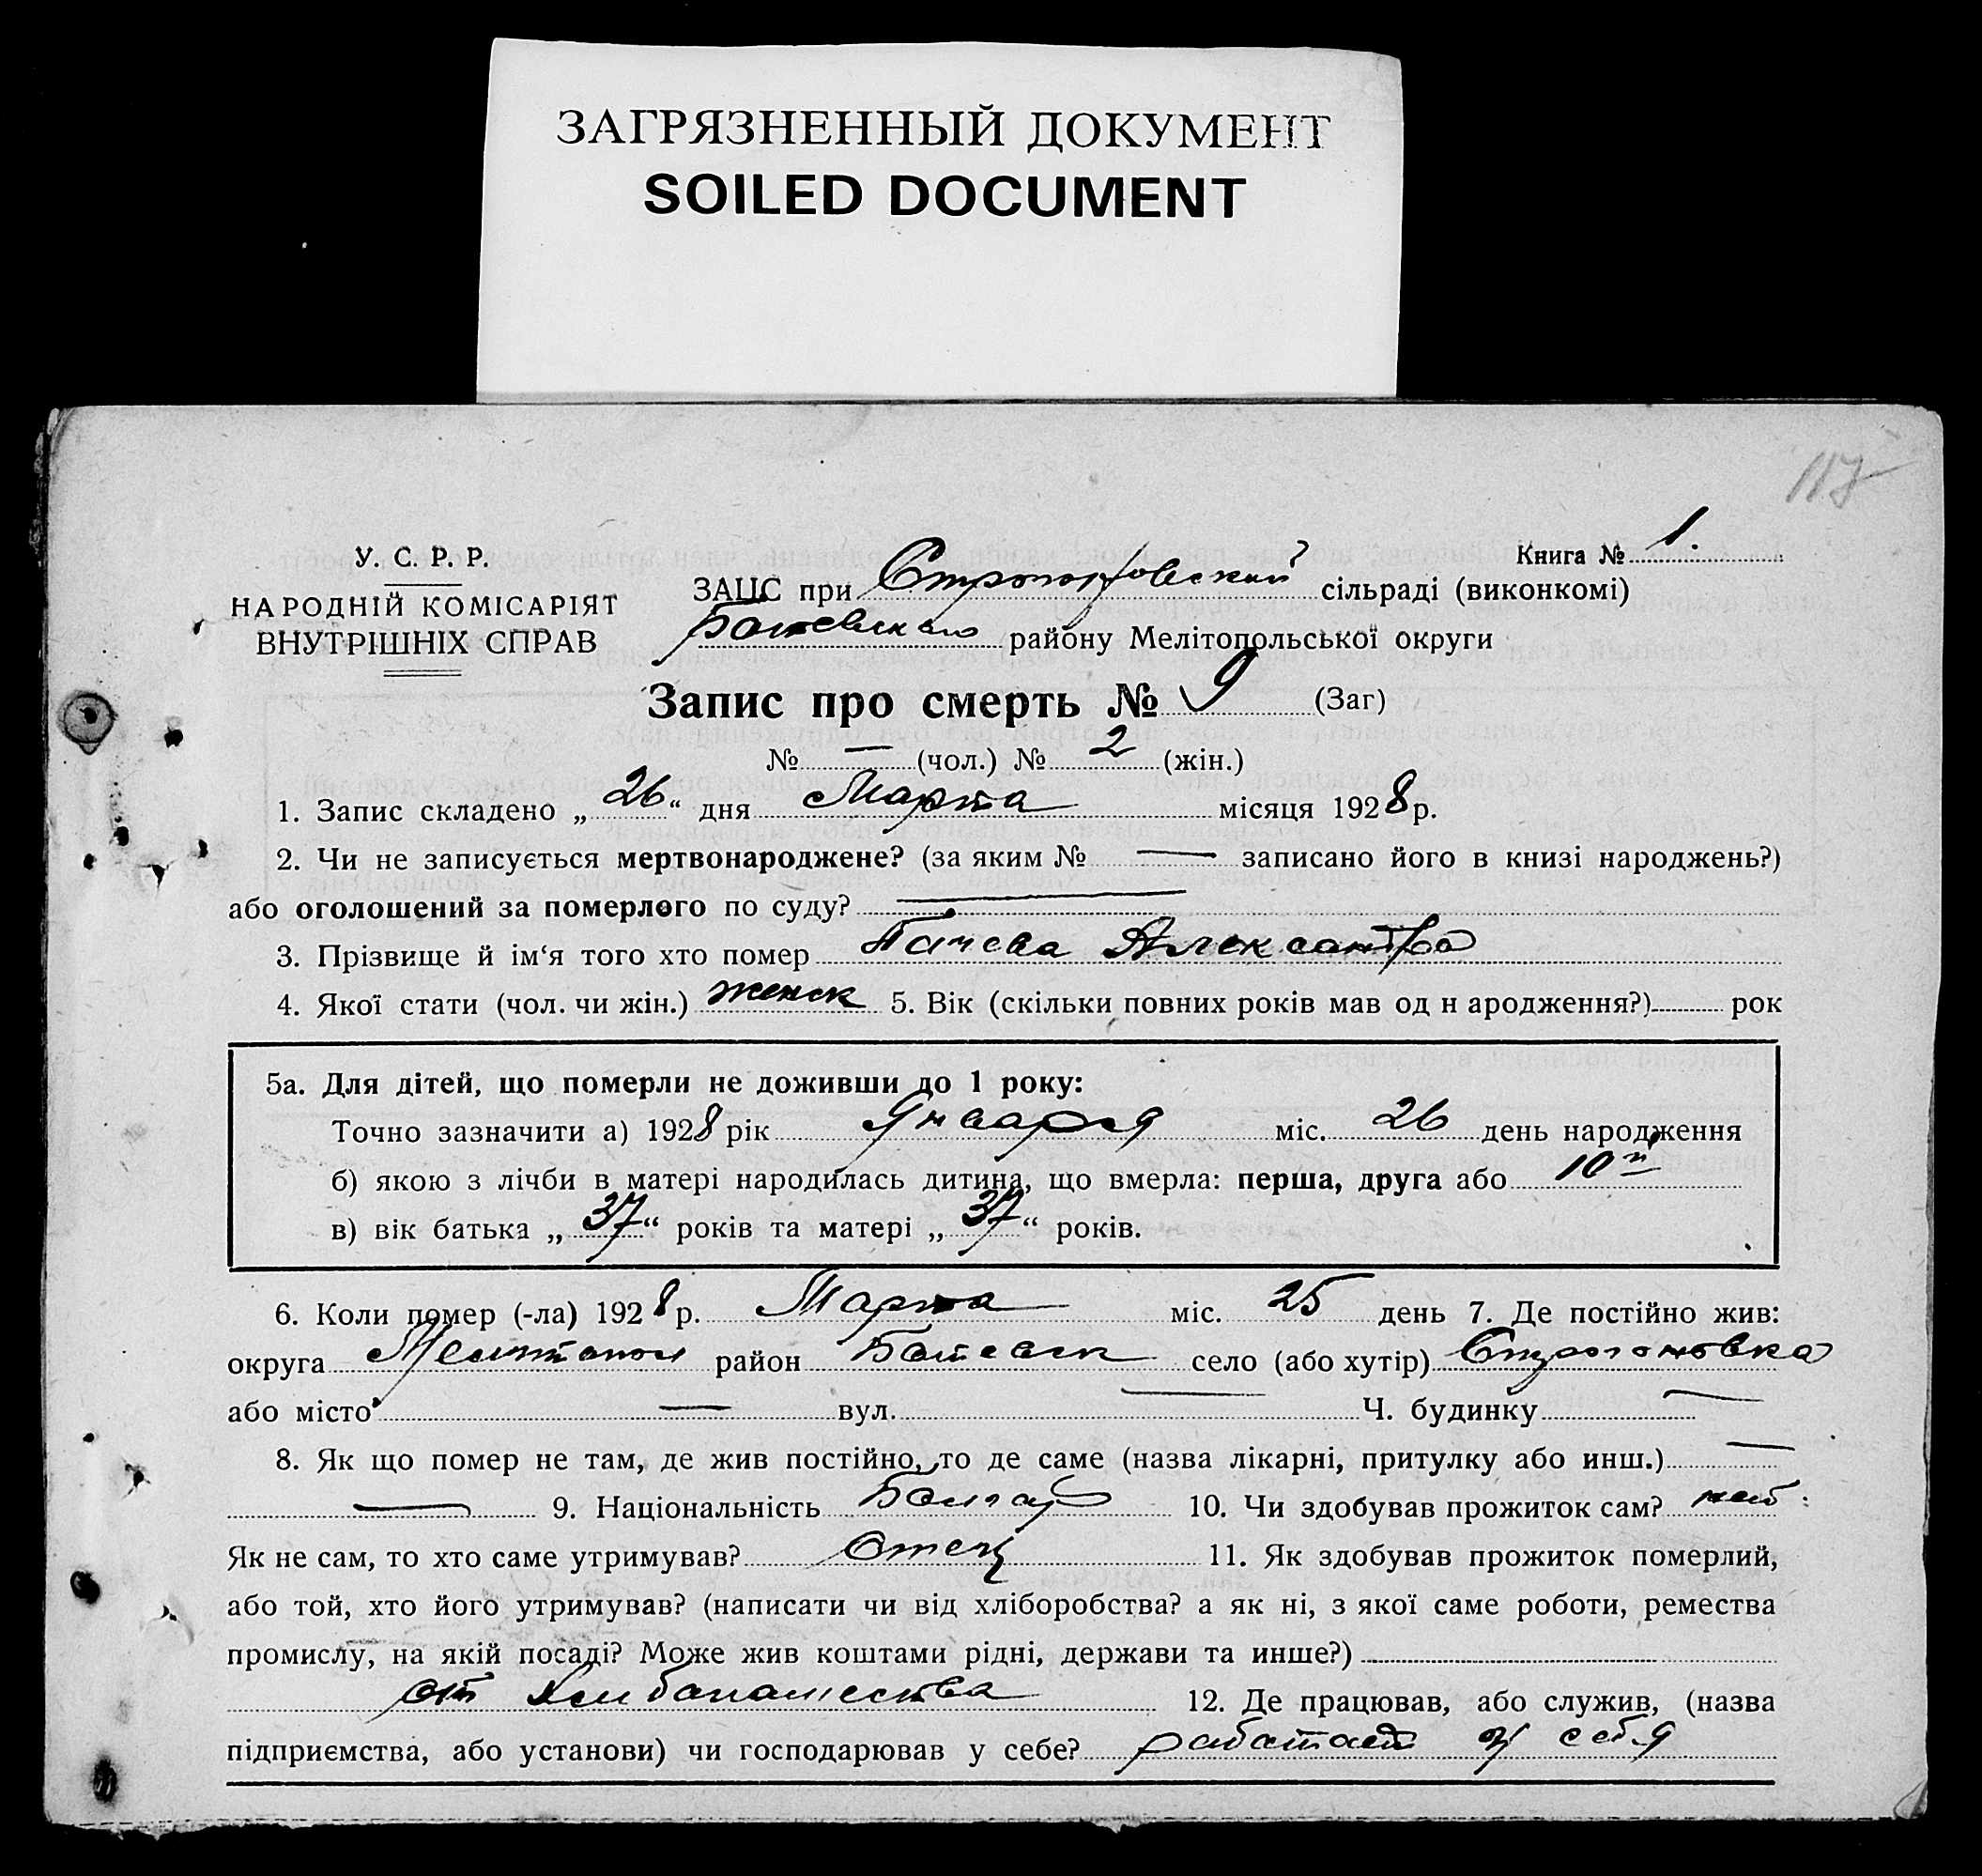 ЗАГРЯЗНЕННЫЙ ДОКУМЕНТ
SOILED DOCUMENT
117
У. С. Р. Р.
НАРОДНІЙ КОМІСАРІЯТ
ВНУТРІШНІХ СПРАВ
Книга № 1.
ЗАЦС при сільраді (виконкомі)
району Мелітопольської округи
Запис про смерть № 9 (Заг)
№ — (чол.) № 2 (жін.)
1. Запис складено „ 26 “ дня Марта місяця 1928 р.
2. Чи не записується мертвонароджене? (за яким № — записано його в книзі народжень?)
або оголошений за померлого по суду? —
3. Прізвище й ім‘я того хто помер Александра
4. Якої стати (чол. чи жін.) женск 5. Вік (скільки повних років мав од н ародження?) рок
5а. Для дітей, що померли не доживши до 1 року:
Точно зазначити а) 1928 рік Января міс. 26 день народження
б) якою з лічби в матері народилась дитина, що вмерла: перша, друга або 10й
в) вік батька „ 37 “ років та матері „ 37 “ років.
6. Коли помер (-ла) 1928 р. Марта міс. 25 день 7. Де постійно жив:
округа Мелитопол район Ботевск село (або хутір) Строгоновка
або місто — вул. — Ч. будинку —
8. Як що помер не там, де жив постійно, то де саме (назва лікарні, притулку або инш.) —
— 9. Національність Болгар 10. Чи здобував прожиток сам?
Як не сам, то хто саме утримував? Отец 11. Як здобував прожиток померлий,
або той, хто його утримував? (написати чи від хліборобства? а як ні, з якої саме роботи, ремества
промислу, на якій посаді? Може жив коштами рідні, держави та инше?)
от 12. Де працював, або служив, (назва
підприємства, або установи) чи господарював у себе? работает у себя